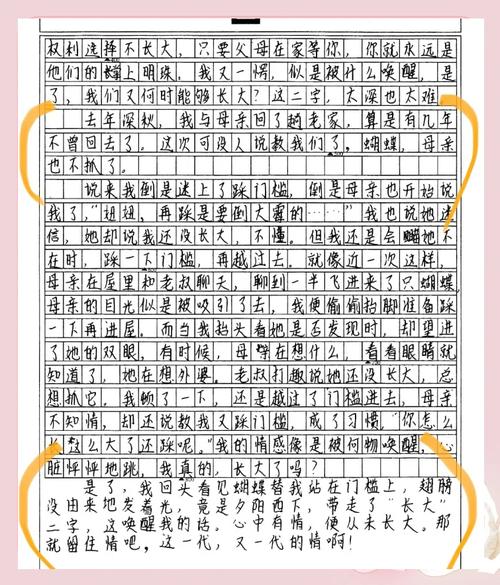 权利选择不长大，只要父母在家等你，你就永远是
他们的掌上明珠，我又一愣，似是被什么唤醒，是
了，我们又何时能够长大？这二字，太深也太难
去年深秋，我与母亲回了趟老家，算是有几年
不曾回去了。这次可没人说教我们了，蝴蝶，母亲
也不抓了。
说来我倒是迷上了踩门槛，倒是母亲也开始说
我了，“妞妞，再踩是要倒大霉的……”我也说她迷
信，她却说我还没长大，不懂。但我还是会瞒她不
在时，踩一下门槛，再越过去。就像近一次这样，
母亲在屋里和老叔聊天，聊到一半飞进来了只蝴蝶，
母亲的目光似是被吸引了去，我便偷偷抬脚准备踩
一下再进屋。而当我抬头看她是否发现时，却望进
了她的双眼，有时候，母亲在想什么，看看眼睛就
知道了，她在想外婆。老叔打趣说她还没长大，总
想抓它，我顿了一下，还是越过了门槛进去，母亲
不知情，却还说教我又踩门槛，成了习惯，“你怎么
长这么大了还踩呢。”我的情感像是被何物唤醒，心
脏怦怦地跳，我真的，长大了吗？
是了，我回头看见蝴蝶替我站在门槛上，翅膀
没由来地发着光，竟是夕阳西下，带走了“长大”
二字，这唤醒我的话。心中有情，便从未长大。那
就留住情吧，这一代，又一代的情啊！